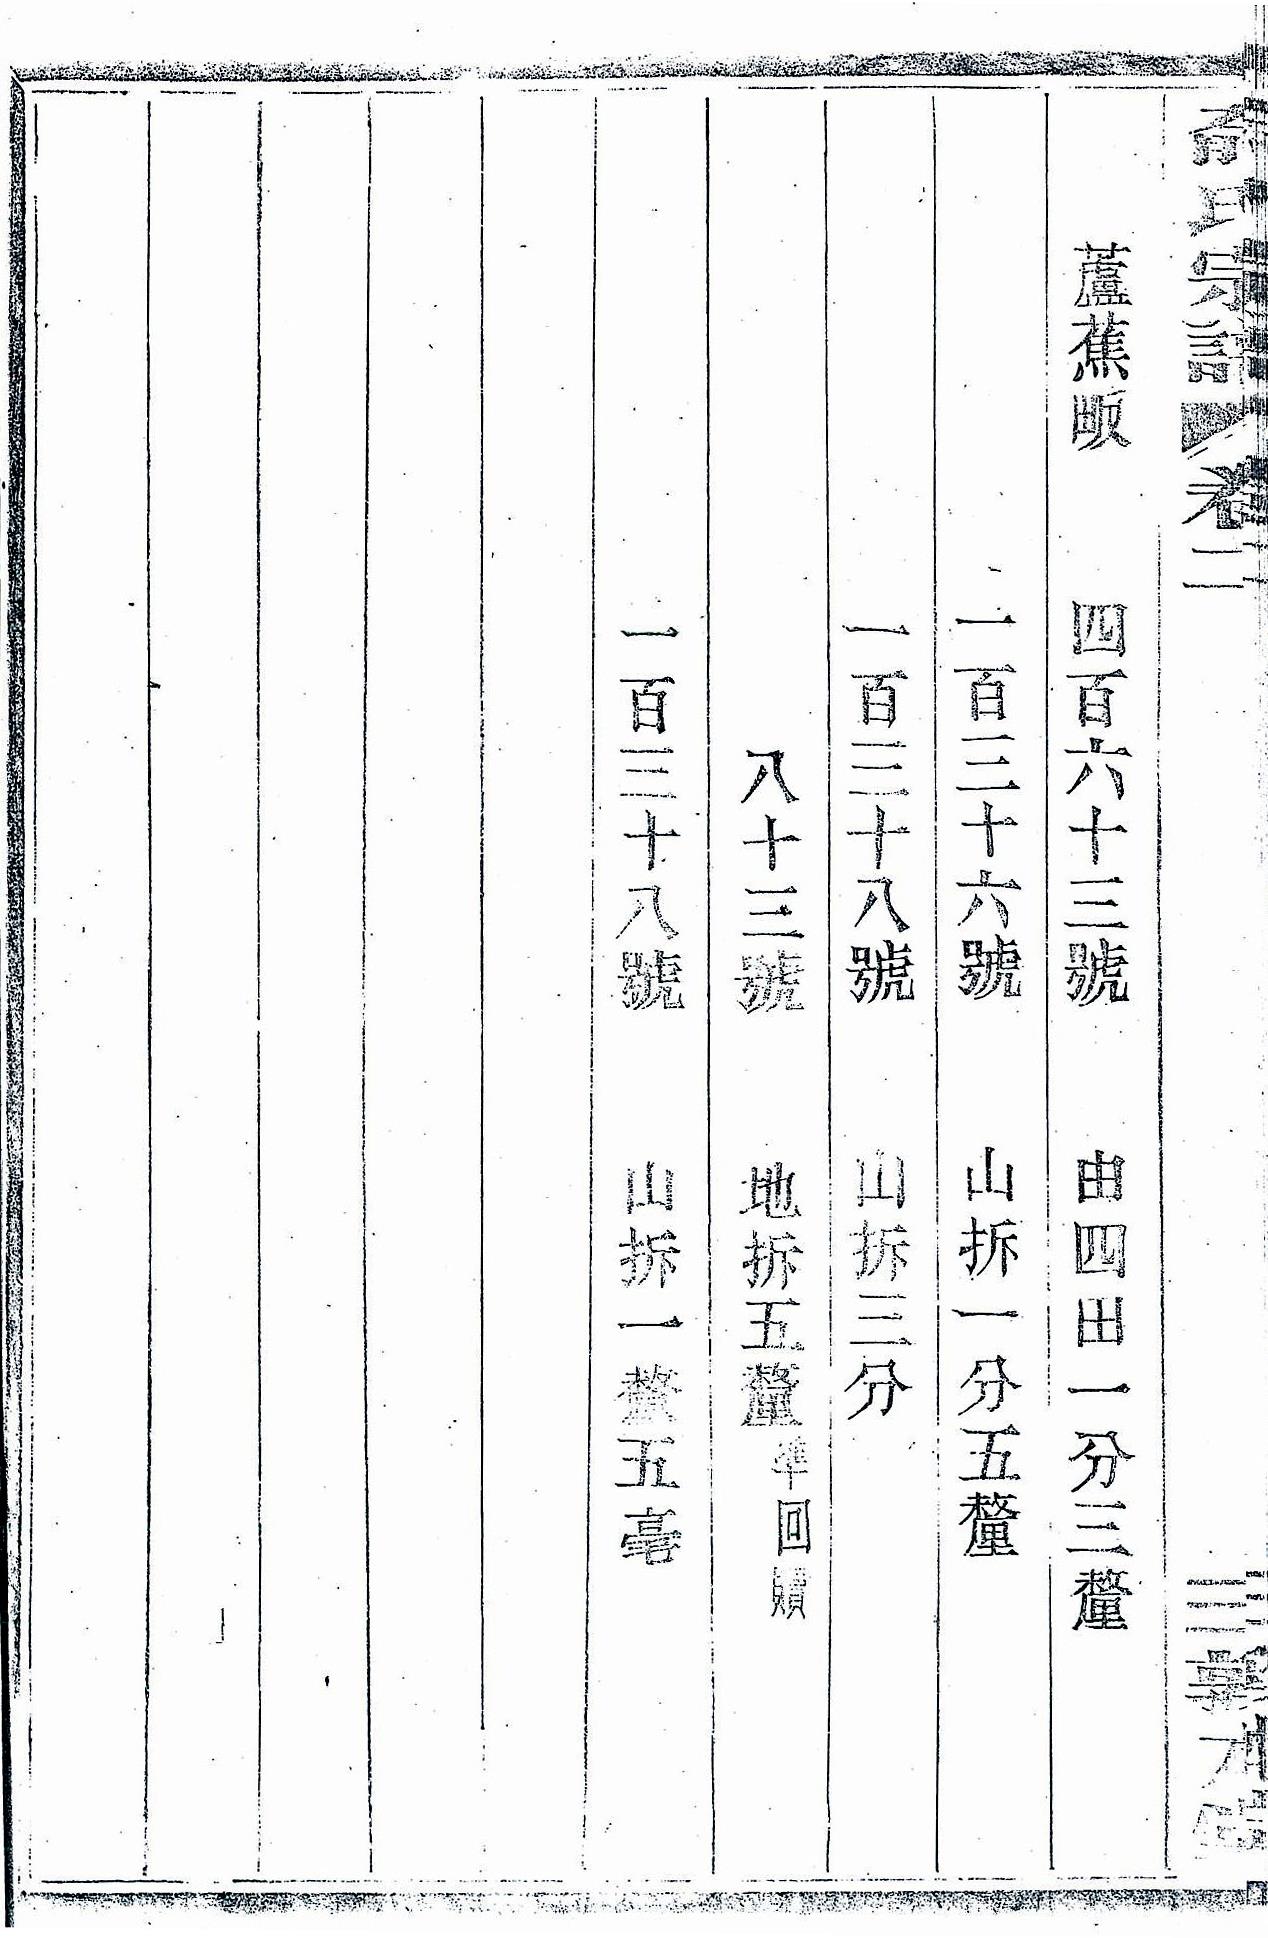 氏宗譜 卷二
蘆蕉畈 四百六十三號 由四出一分三釐
一百三十六號 山拆一分五釐
一百三十八號 山拆三分
八十三號 地拆五釐 準回贖
一百三十八號 山拆一釐五毫